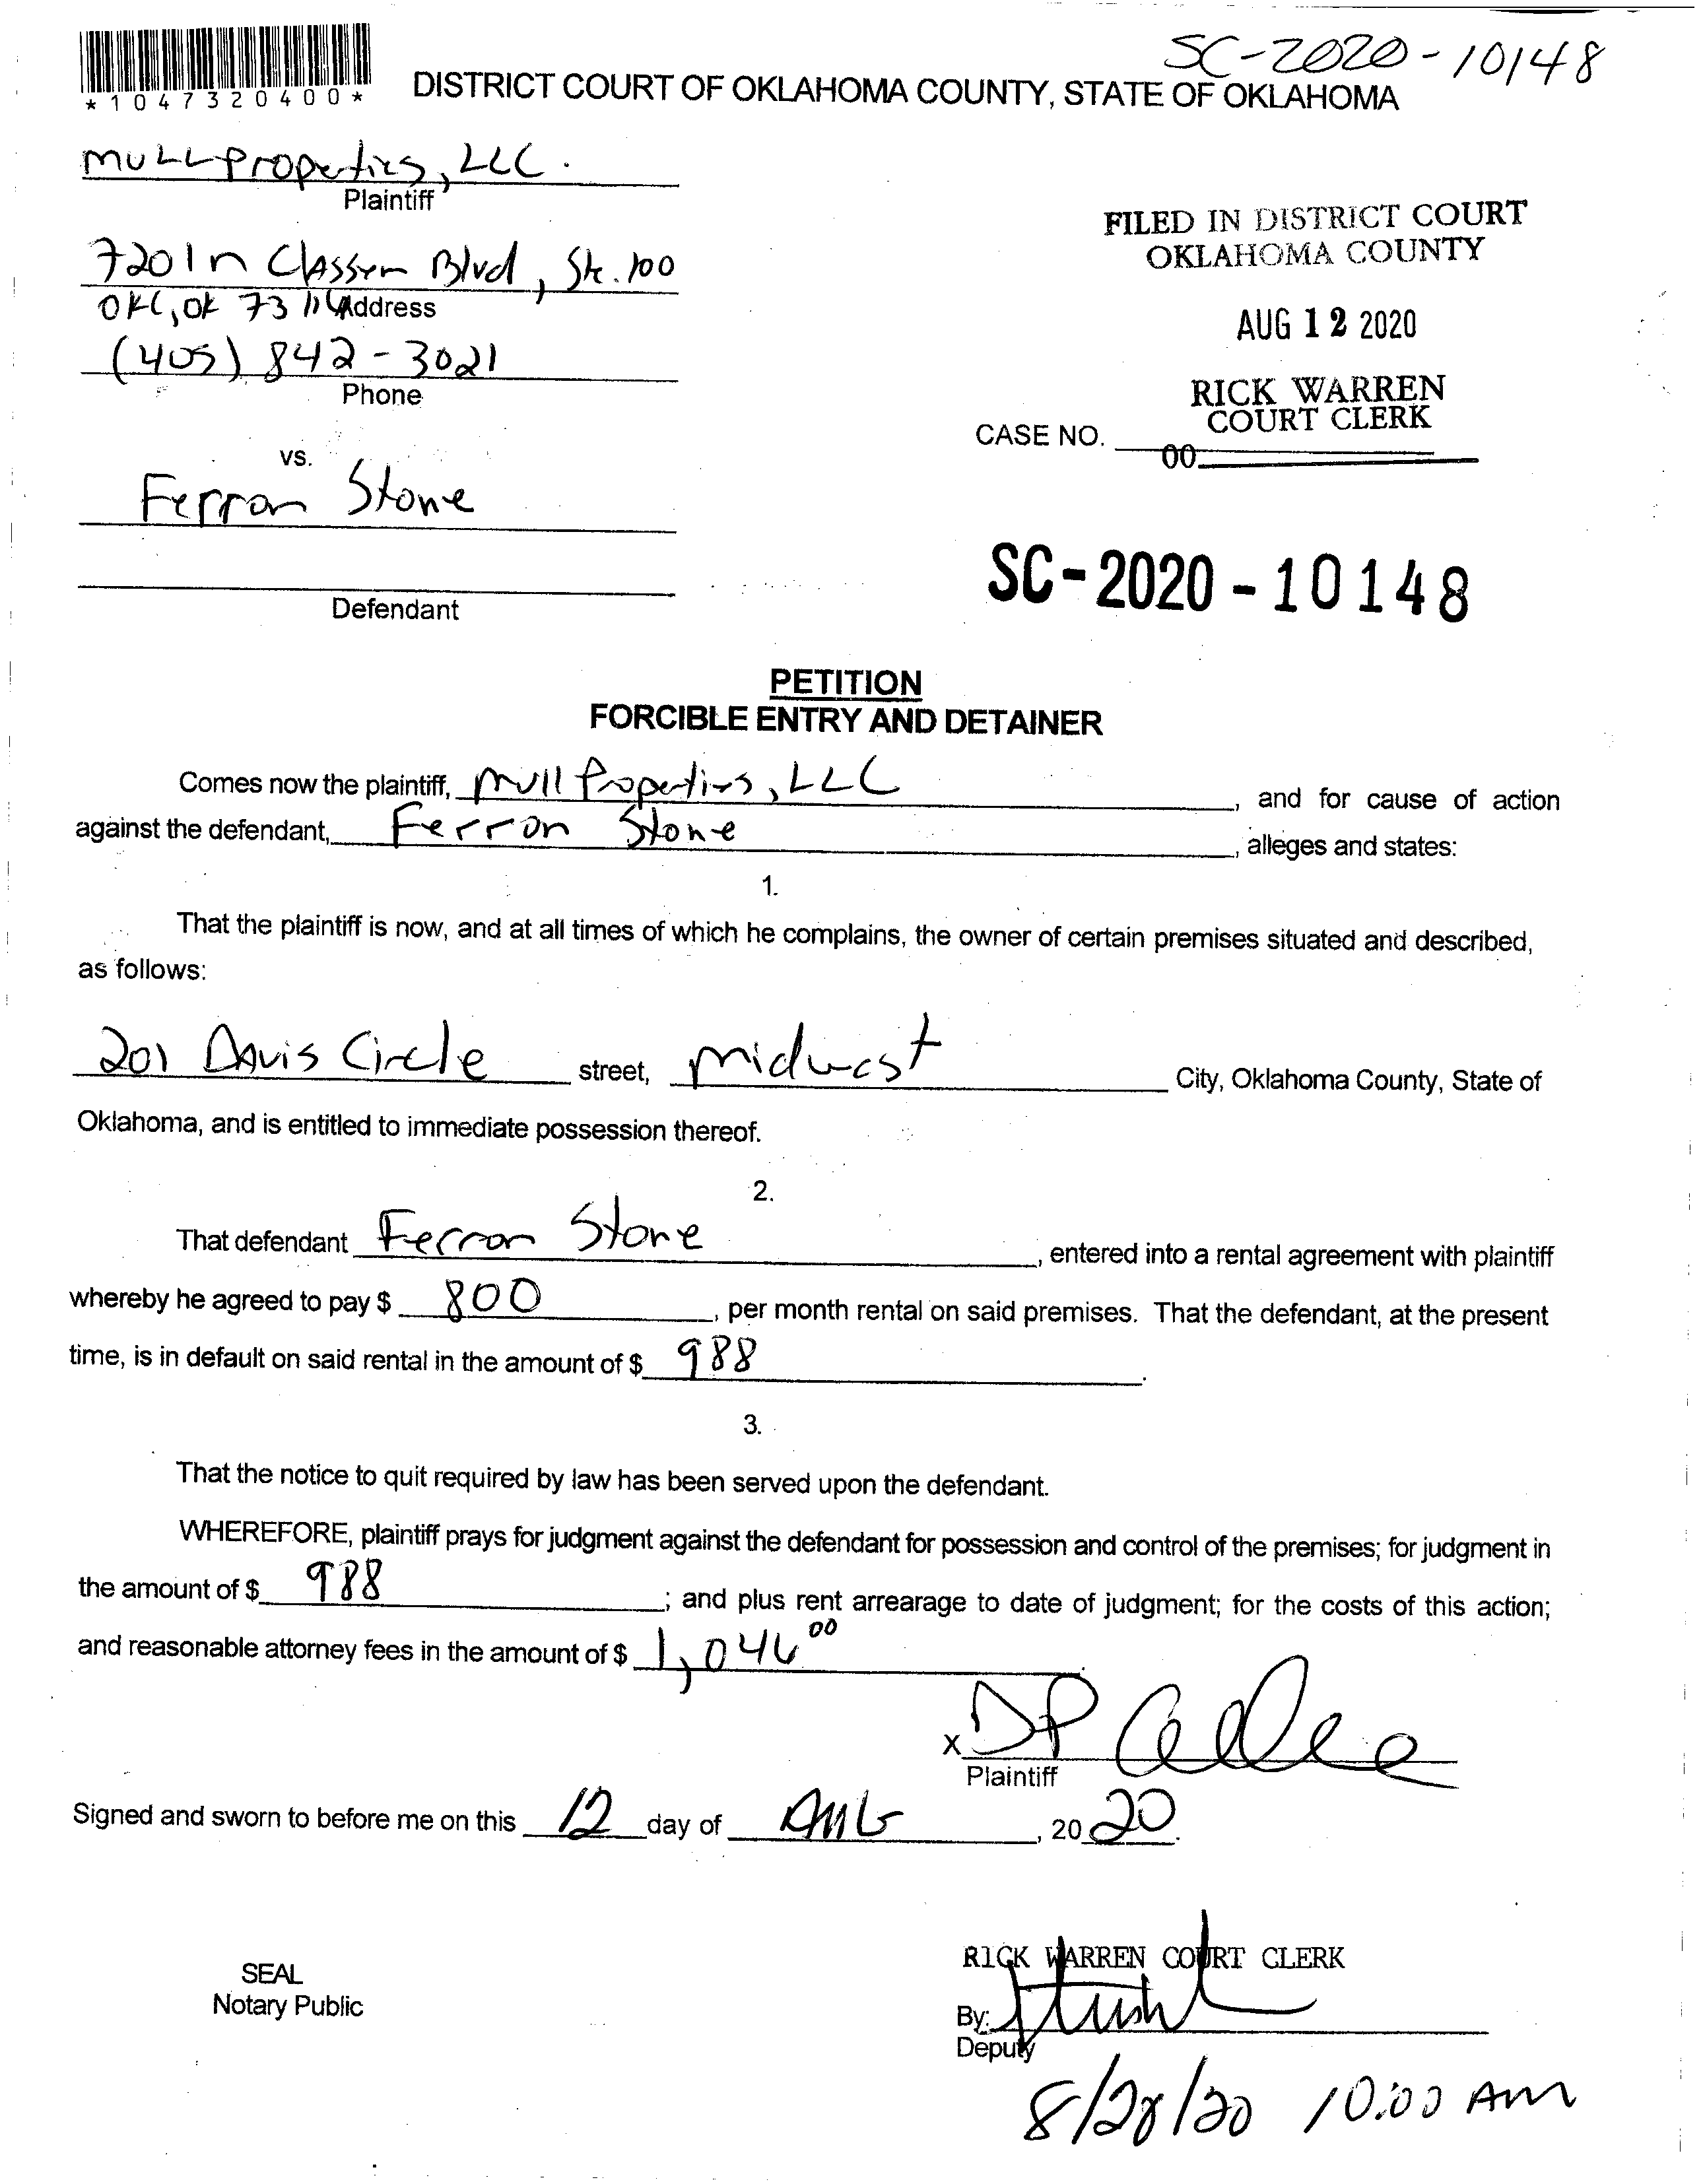 SC-2020-10148
*1047320400*
DISTRICT COURT OF OKLAHOMA COUNTY, STATE OF OKLAHOMA
MULL Properties, LLC.
Plaintiff
7201 n Classen Blvd, Ste. 100
OKC, OK 73116 Address
(405) 842-3021
Phone
FILED IN DISTRICT COURT
OKLAHOMA COUNTY
AUG 12 2020
RICK WARREN
COURT CLERK
CASE NO.
00
vs.
Ferron Stone
Defendant
SC-2020-10148
PETITION
FORCIBLE ENTRY AND DETAINER
Comes now the plaintiff, Mull Properties, LLC, and for cause of action
against the defendant, Ferron Stone, alleges and states:
1.
That the plaintiff is now, and at all times of which he complains, the owner of certain premises situated and described,
as follows:
201 Davis Circle street, midwest City, Oklahoma County, State of
Oklahoma, and is entitled to immediate possession thereof.
2.
That defendant Ferron Stone, entered into a rental agreement with plaintiff
whereby he agreed to pay $ 800, per month rental on said premises. That the defendant, at the present
time, is in default on said rental in the amount of $ 988.
3.
That the notice to quit required by law has been served upon the defendant.
WHEREFORE, plaintiff prays for judgment against the defendant for possession and control of the premises; for judgment in
the amount of $ 988; and plus rent arrearage to date of judgment; for the costs of this action;
and reasonable attorney fees in the amount of $ 1,046 00
X
Plaintiff
Signed and sworn to before me on this 12 day of AUG, 2020.
SEAL
Notary Public
RICK WARREN COURT CLERK
By:
Deputy
8/28/20 10:00 AM